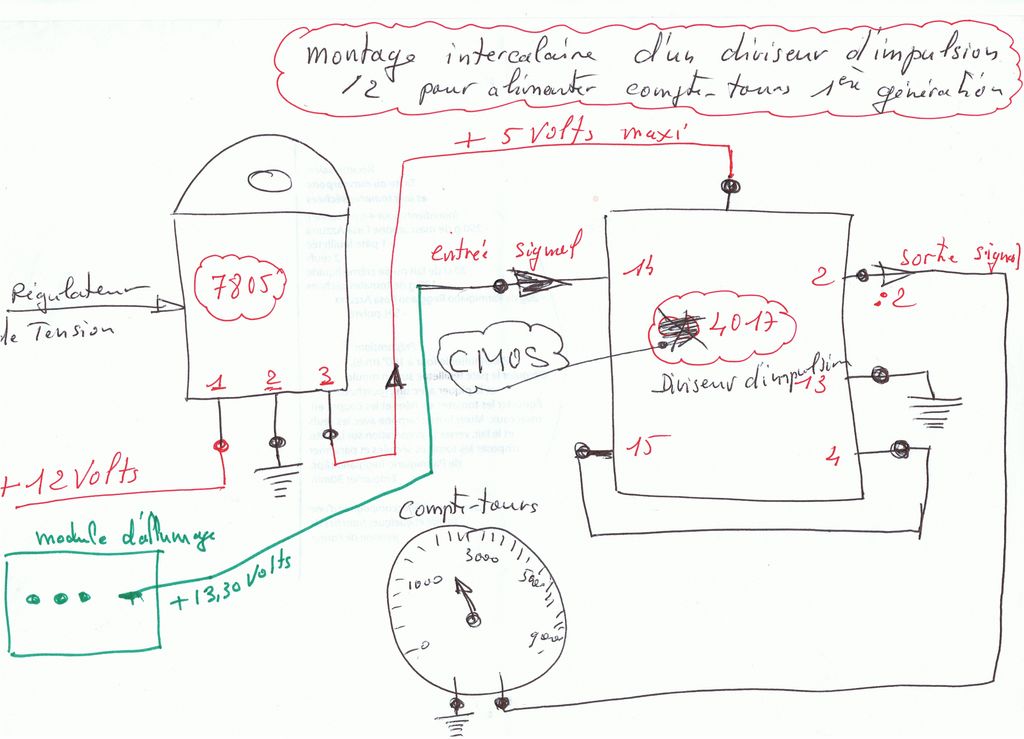 montage intercalaire d'un diviseur d'impulsion
12 pour alimenter compte-tours 1ère génération
+ 5 Volts maxi
entrée signal
sortie signal
7805
Régulateur
de Tension
14
2
: 2
4017
CMOS
Diviseur d'impulsion
13
1 2 3
15
4
+12 Volts
module d'allumage
+13,30 Volts
compte-tours
0
1000
3000
5000
9000